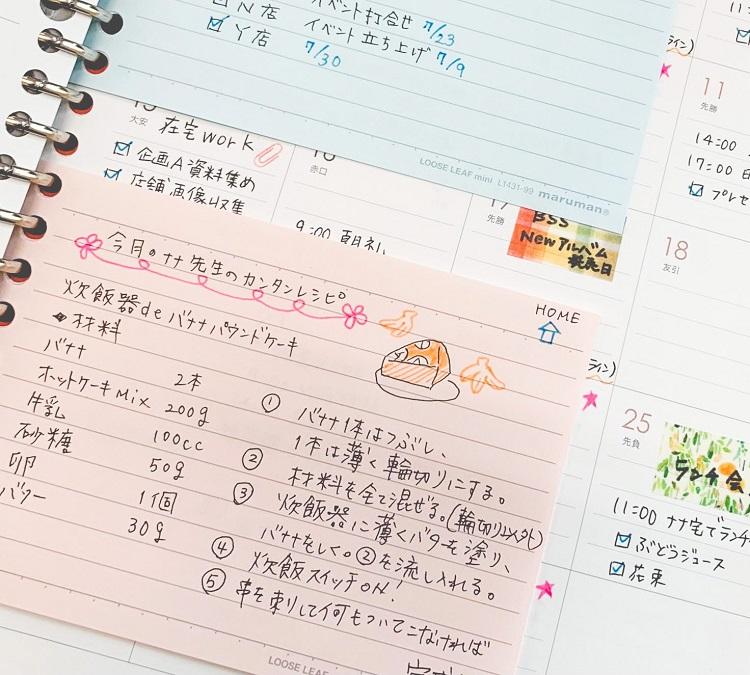 N店 イベント打合せ 7/23
Y店 イベント立ち上げ 7/9
7/30
LOOSE LEAF mini L1431-99 maruman®
大安
在宅work
企画A資料集め
店舗画像収集
16
赤口
9:00 朝礼
17
先勝
BSS
Newアルバム
発売日
11
先勝
14:00
17:00
プレゼ
18
友引
25
先負
ランチ会
11:00 ナナ宅でランチ
ぶどうジュース
花束
ライン)
ライン)
今月のナナ先生のカンタンレシピ
HOME
炊飯器deバナナパウンドケーキ
材料
バナナ 2本
ホットケーキMix 200g
牛乳 100cc
砂糖 50g
卵 1個
バター 30g
① バナナ1本はつぶし、
1本は薄く輪切りにする。
② 材料を全て混ぜる。(輪切り以外)
③ 炊飯器に薄くバターを塗り、
バナナをしく。②を流し入れる。
④ 炊飯スイッチON!
⑤ 串を刺して何もついてこなければ
LOOSE LEAF